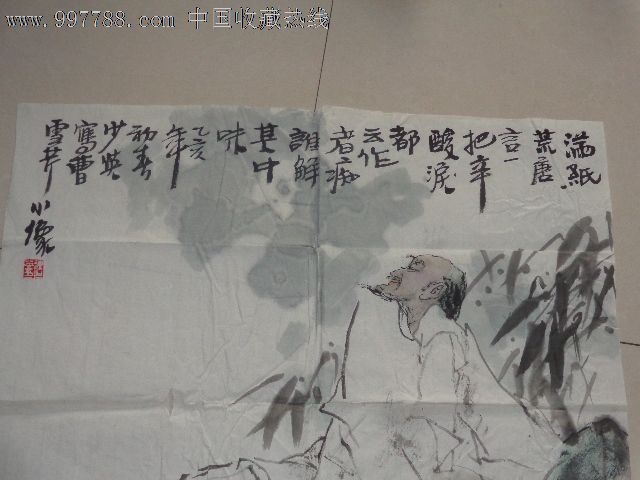 www.997788.com 中国收藏热线
满紙
荒唐
言一
把辛
酸淚
都
云作
者痴
誰解
其中
味
乙亥
年
初春
少英
寫曹
雪芹
小像